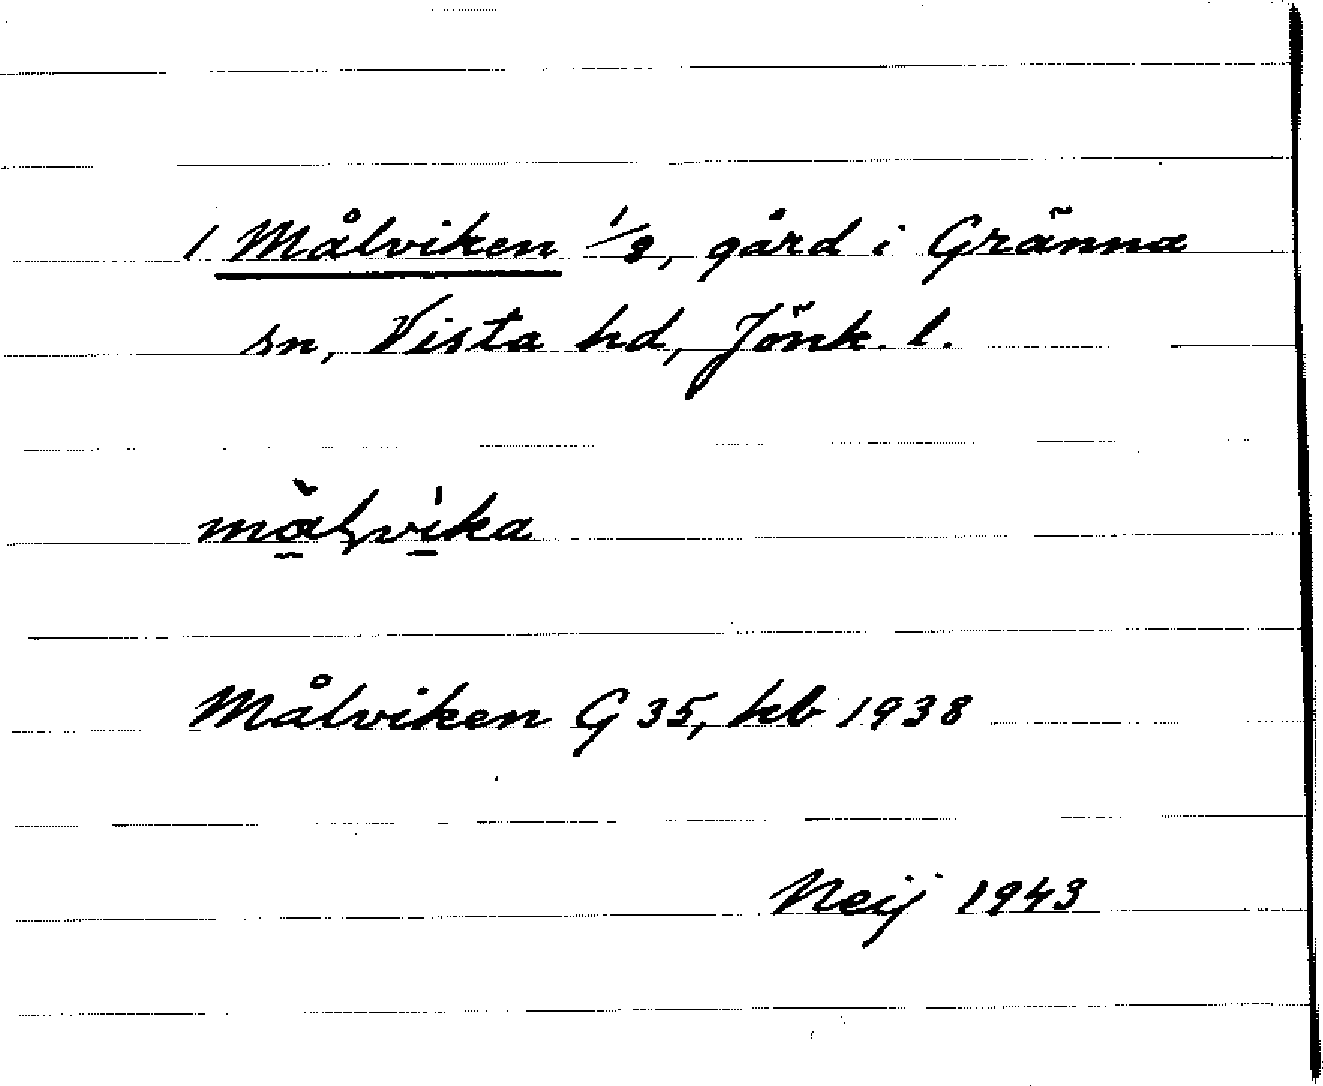 1 Målviken 1/8, gård i Gränna
sn, Vista hd, Jönk. l.
målvika
Målviken G 35, kb 1938
Neij 1943